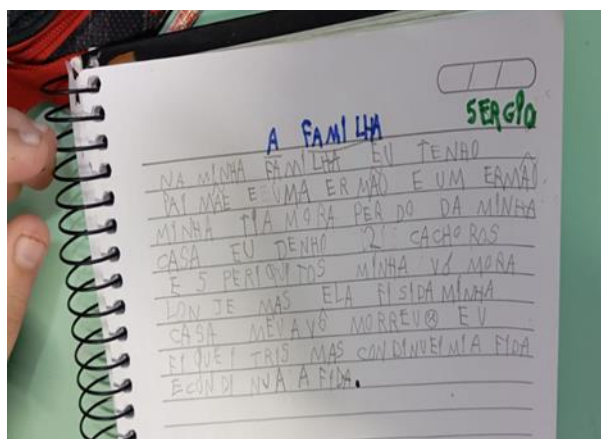 SERGIO
A FAMILHA
NA MINHA FAMILHA EU TENHO
PAI MÃE E UMA ERMÃ E UM ERMÃO
MINHA TIA MORA PERDO DA MINHA
CASA EU DENHO 2 CACHOROS
E 5 PERIQUITOS MINHA VÓ MORA
LONJE MAS ELA FISIDA MINHA
CASA MEU AVÔ MORREU EU
FIQUEI TRIS MAS CONDINUEI MIA FIDA
E CONDINUA A FIDA.